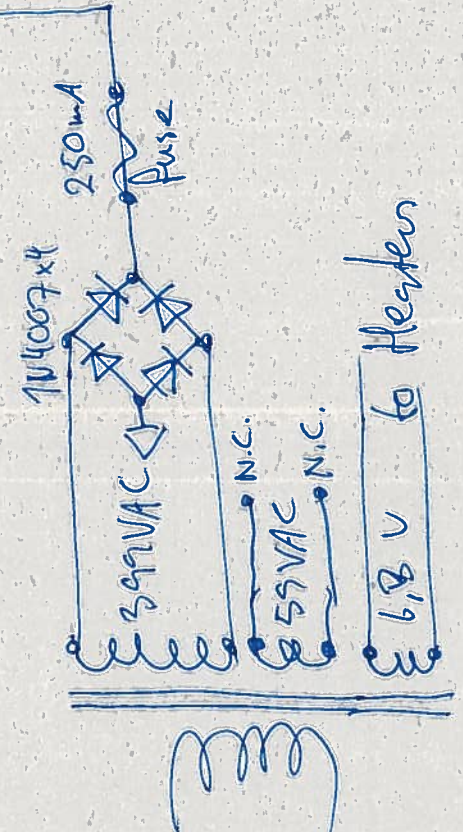 250mA
fuse
1N4007x4
399VAC
N.C.
59VAC
N.C.
6,8 V
to Heaters